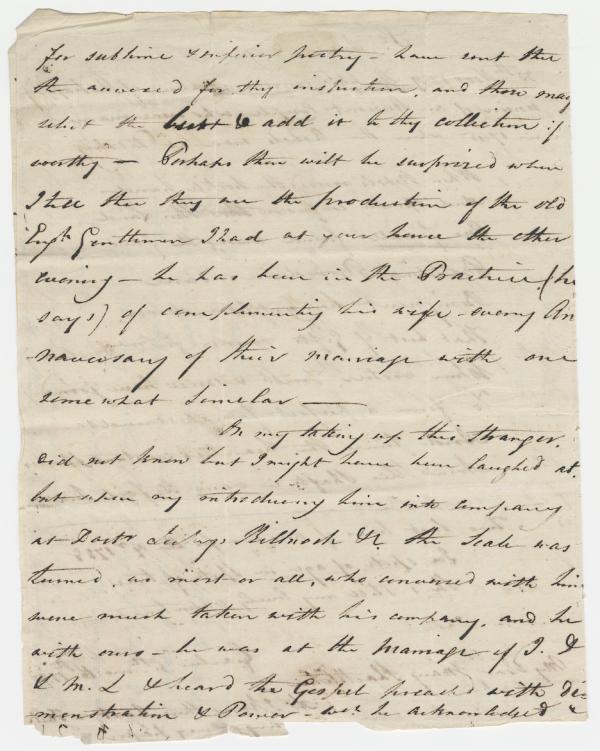 for sublime & superior poetry – have sent thee
the annexed for thy inspection, and thou may
select the best & add it to thy collection if
worthy – Perhaps thou wilt be surprized when
I tell thee they are the production of the old
Engh. Gentlemen I had at your house the other
evening – he has been in the Practice (he
says) of complimenting his wife – every An
-naversary of their marriage with one
somewhat Similar —
On my taking up this Stranger,
did not know but I might have been laughed at,
but when my introducing him into company
at Doctr &c. the Scale was
turned, as most or all, who conversed with him
were much taken with his company, and he
with ours – he was at the marriage of J. D
& M. L & heard the Gospel preached with de
monstration & Power – wch. he acknowledged